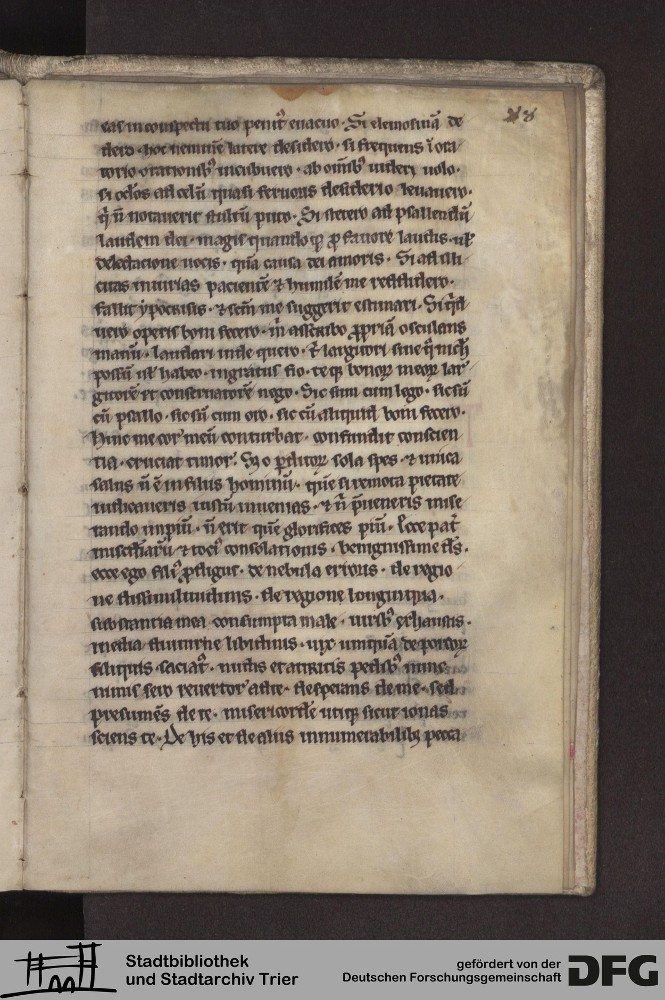 28
eas in conspectu tuo penit᷒ euacuo · Si elemosinā de
dero · hoc neminē latere desidero · si frequens ī ora
torio orationib᷒ incubuero · ab oīnib᷒ uideri uolo ·
si oc̄los ad celū quasi feruoris desiderio leuauero ·
q̄ n̄ notauerit stultū puto · Si stetero ad psallendū
laudem dei · magis quandoqꝫ ꝓ fauore laudis · ul̄
delectacione uocis · quā causa dei amoris · Si ad illi
citas iniurias pacientē ⁊ humilē me reddidero ·
fallit ypocrisis · ⁊ sc̄m me suggerit estimari · Si q̄d
uero operis boni fecero · m̄ ascribo ꝓpriā osculans
manū · laudari inde quero · ⁊ largitori sine q̄ nich̄
possū ul̄ habeo · ingratus sio · te qꝫ bonoꝝ meoꝝ lar
gitorē et conseruatorē nego · Sic sum cum lego · sic sū
cū psallo · sic sū cum oro · sic cū aliquid boni fecero ·
Hinc me cor meū conturbat · confundit conscien
tia · cruciat timor · S; o ꝑditoꝝ sola spes · ⁊ unica
salus n̄ ē in filiis hominū · quē si remota pietate
iudicaueris iustū inuenias · ⁊ n̄ p̄ueneris mise
rando impiū · n̄ erit quē glorifices piū · Ecce pat̄
misc̄diarū ⁊ toci᷒ consolationis · benignissime d̄s ·
ecce ego fili᷒ ꝓdigus · de nebula erroris · de regio
ne dissimilitudinis · de regione longinqua ·
substantia mea consumpta male · uirib᷒ exhaustis ·
media diuturne libidinis · uix umquā de porcoꝝ
siliquis saciat᷒ · nudis et attritis pedib᷒ nunc
nimis sero reuertor ad te · desperans de me · sed
presumēs de te · misericordē utiqꝫ sicut ionas
sciens te · De his et de aliis innumerabilibꝫ pecca
Stadtbibliothek
und Stadtarchiv Trier
gefördert von der
Deutschen Forschungsgemeinschaft
DFG